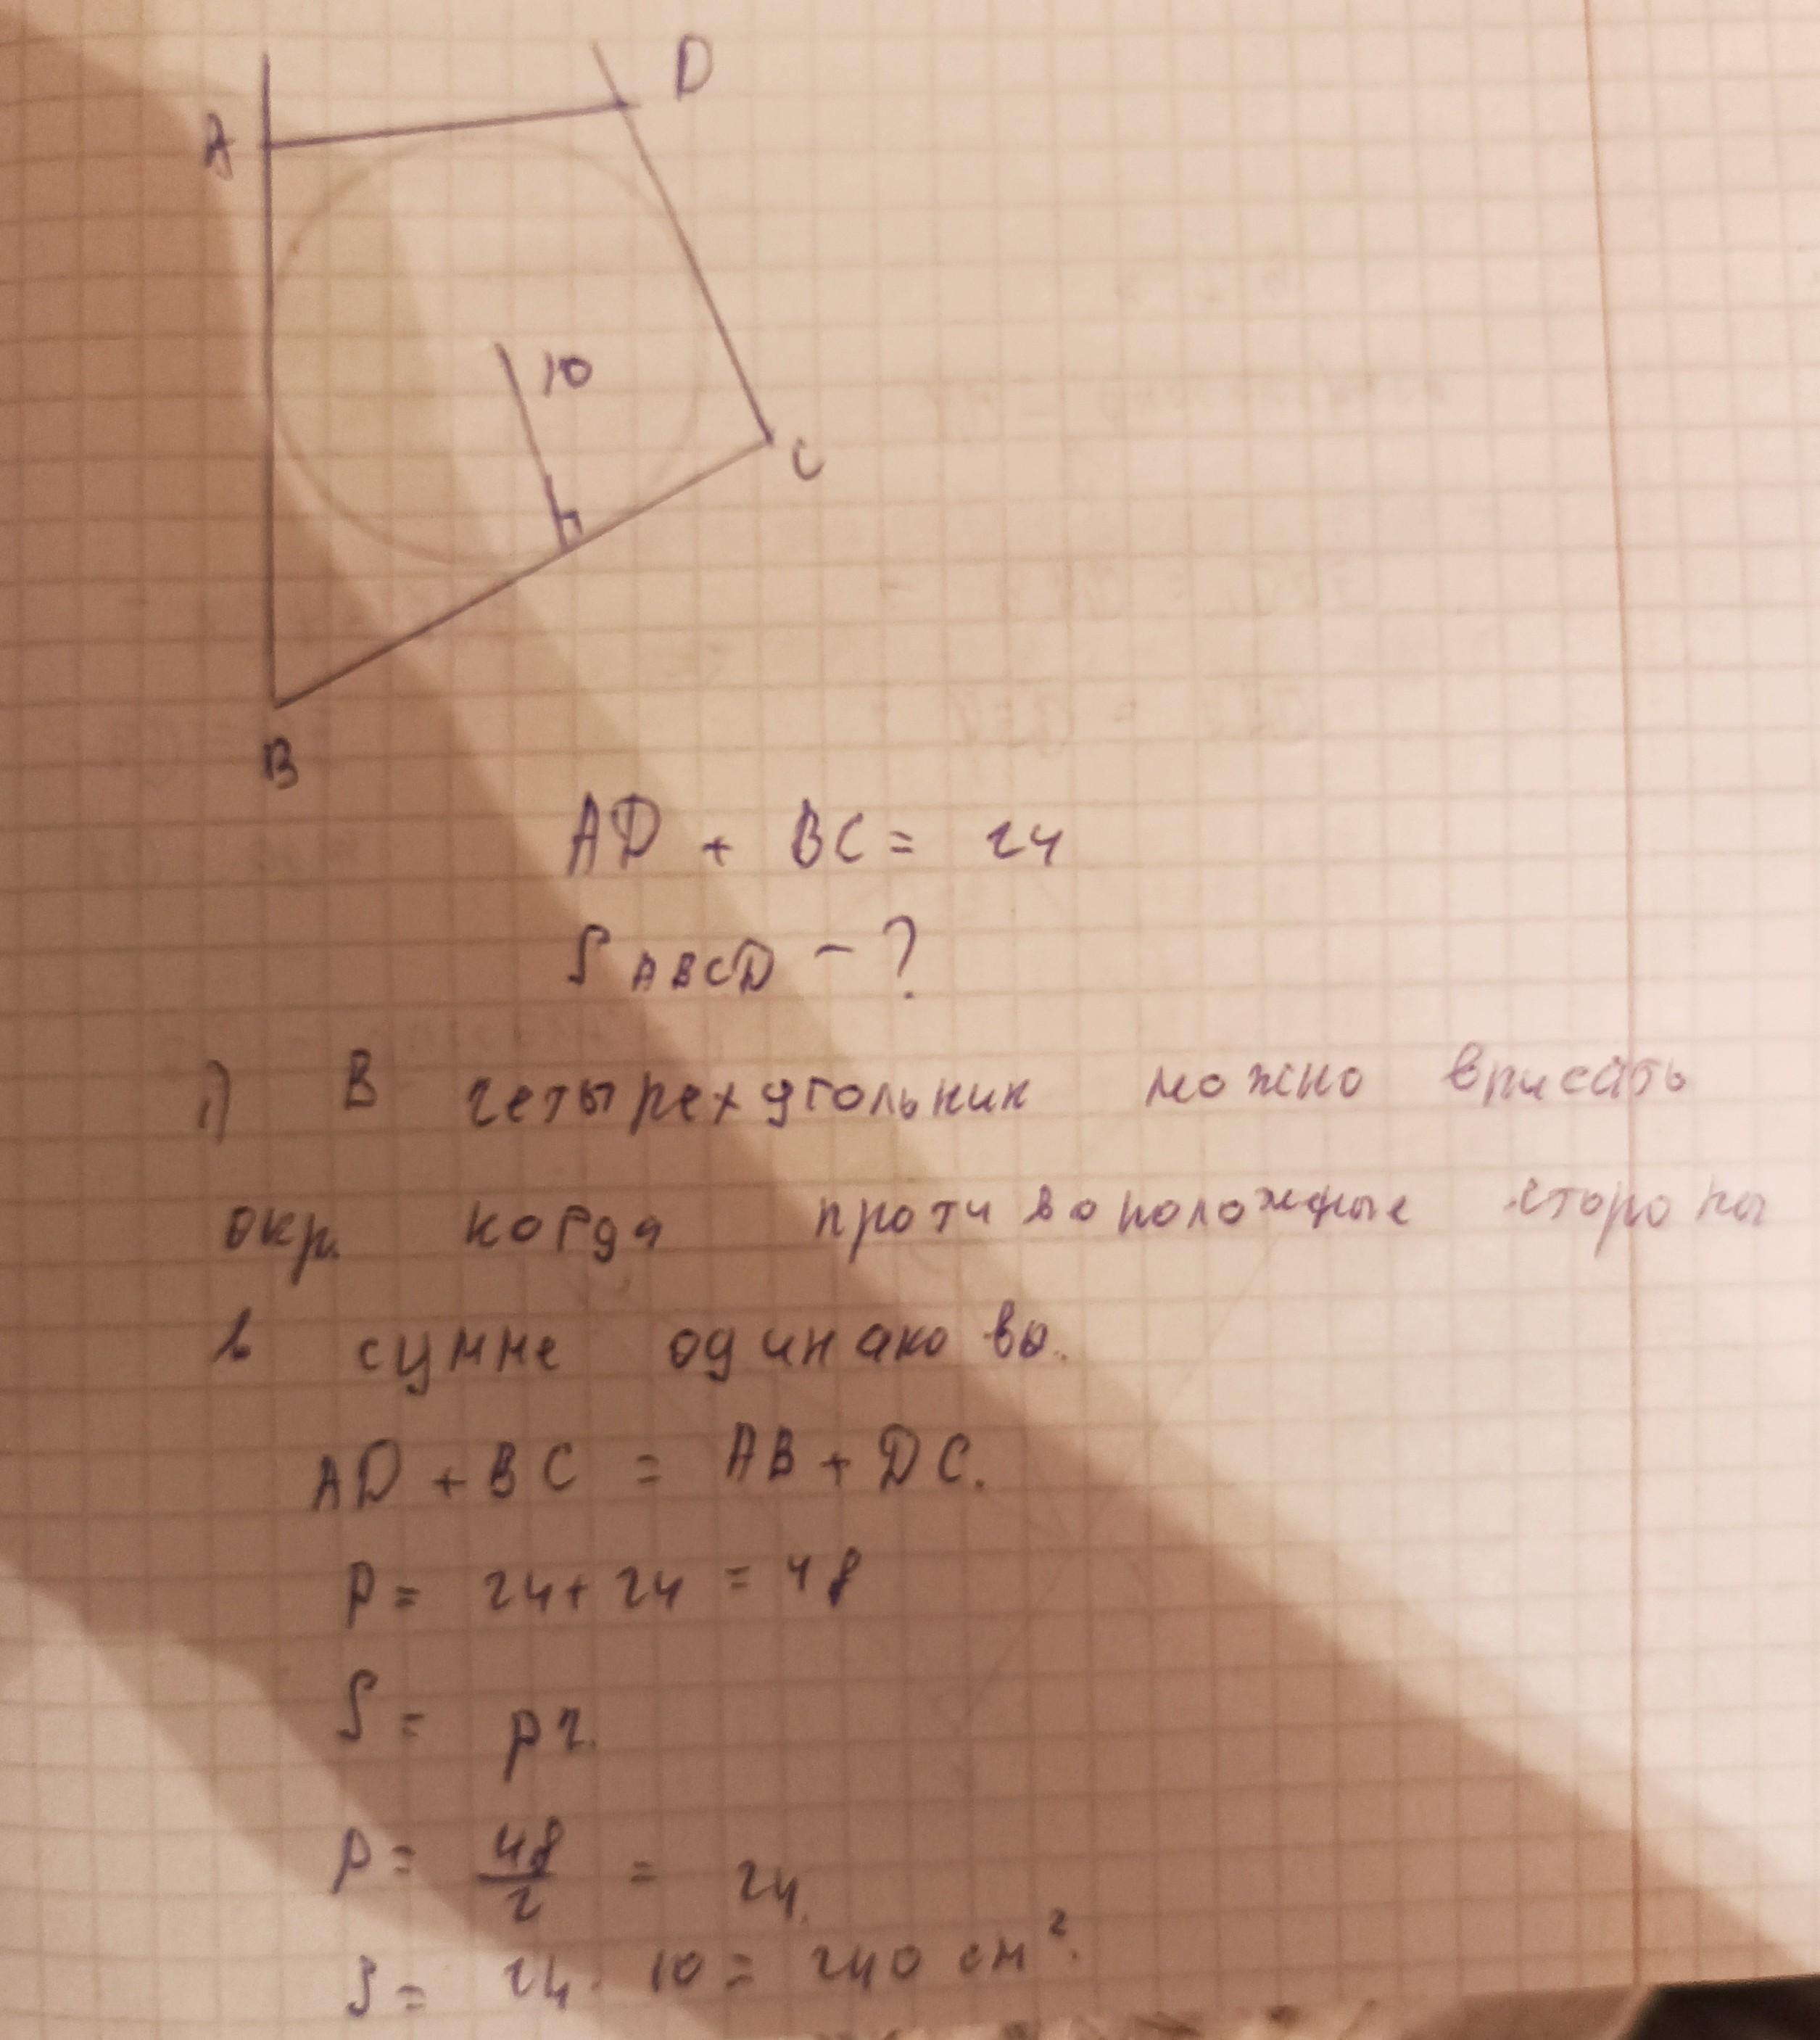 D
A
10
C
B
AD + BC = 24
S ABCD - ?
1) В четырехугольник можно вписать
окр. когда противоположные стороны
в сумме одинаковы.
AD + BC = AB + DC.
P = 24 + 24 = 48
S = pr.
p = 48/2 = 24.
S = 24 · 10 = 240 см².